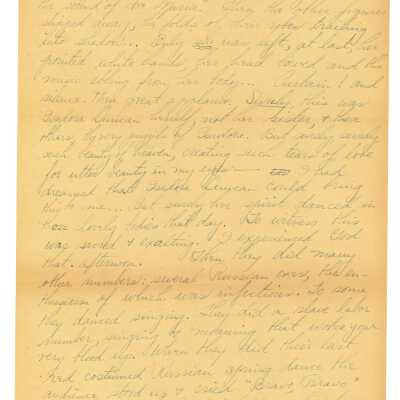 the sound of "Ave Maria." Then the other figures
edged away, the folds of their robes trailing
into shadow. Only was left, at last, her
pointed white hands, her head bowed and the
music ebbing from her body... Curtain! and
silence. Then great applause. Surely this was
Isadora Duncan herself, not her sister, & these
others, by very nymphs of Isadora. But surely
such beauty of heaven, creating such tears of love
for utter beauty in my eyes — I had
dreamed that Isadora Duncan could bring
this to me... But surely her spirit danced in
lovely bodies that day. To witness this
was sacred & exalting. I experienced God
that afternoon. Then they did many
other numbers; several Russian ones, the en-
thusiasm of which was infectious. To some
they danced singing. They did a slave labor
number, singing by measuring that woke your
very blood up. When they did their last
red costumed Russian spring dance the
audience stood up & cried "Bravo, Bravo"